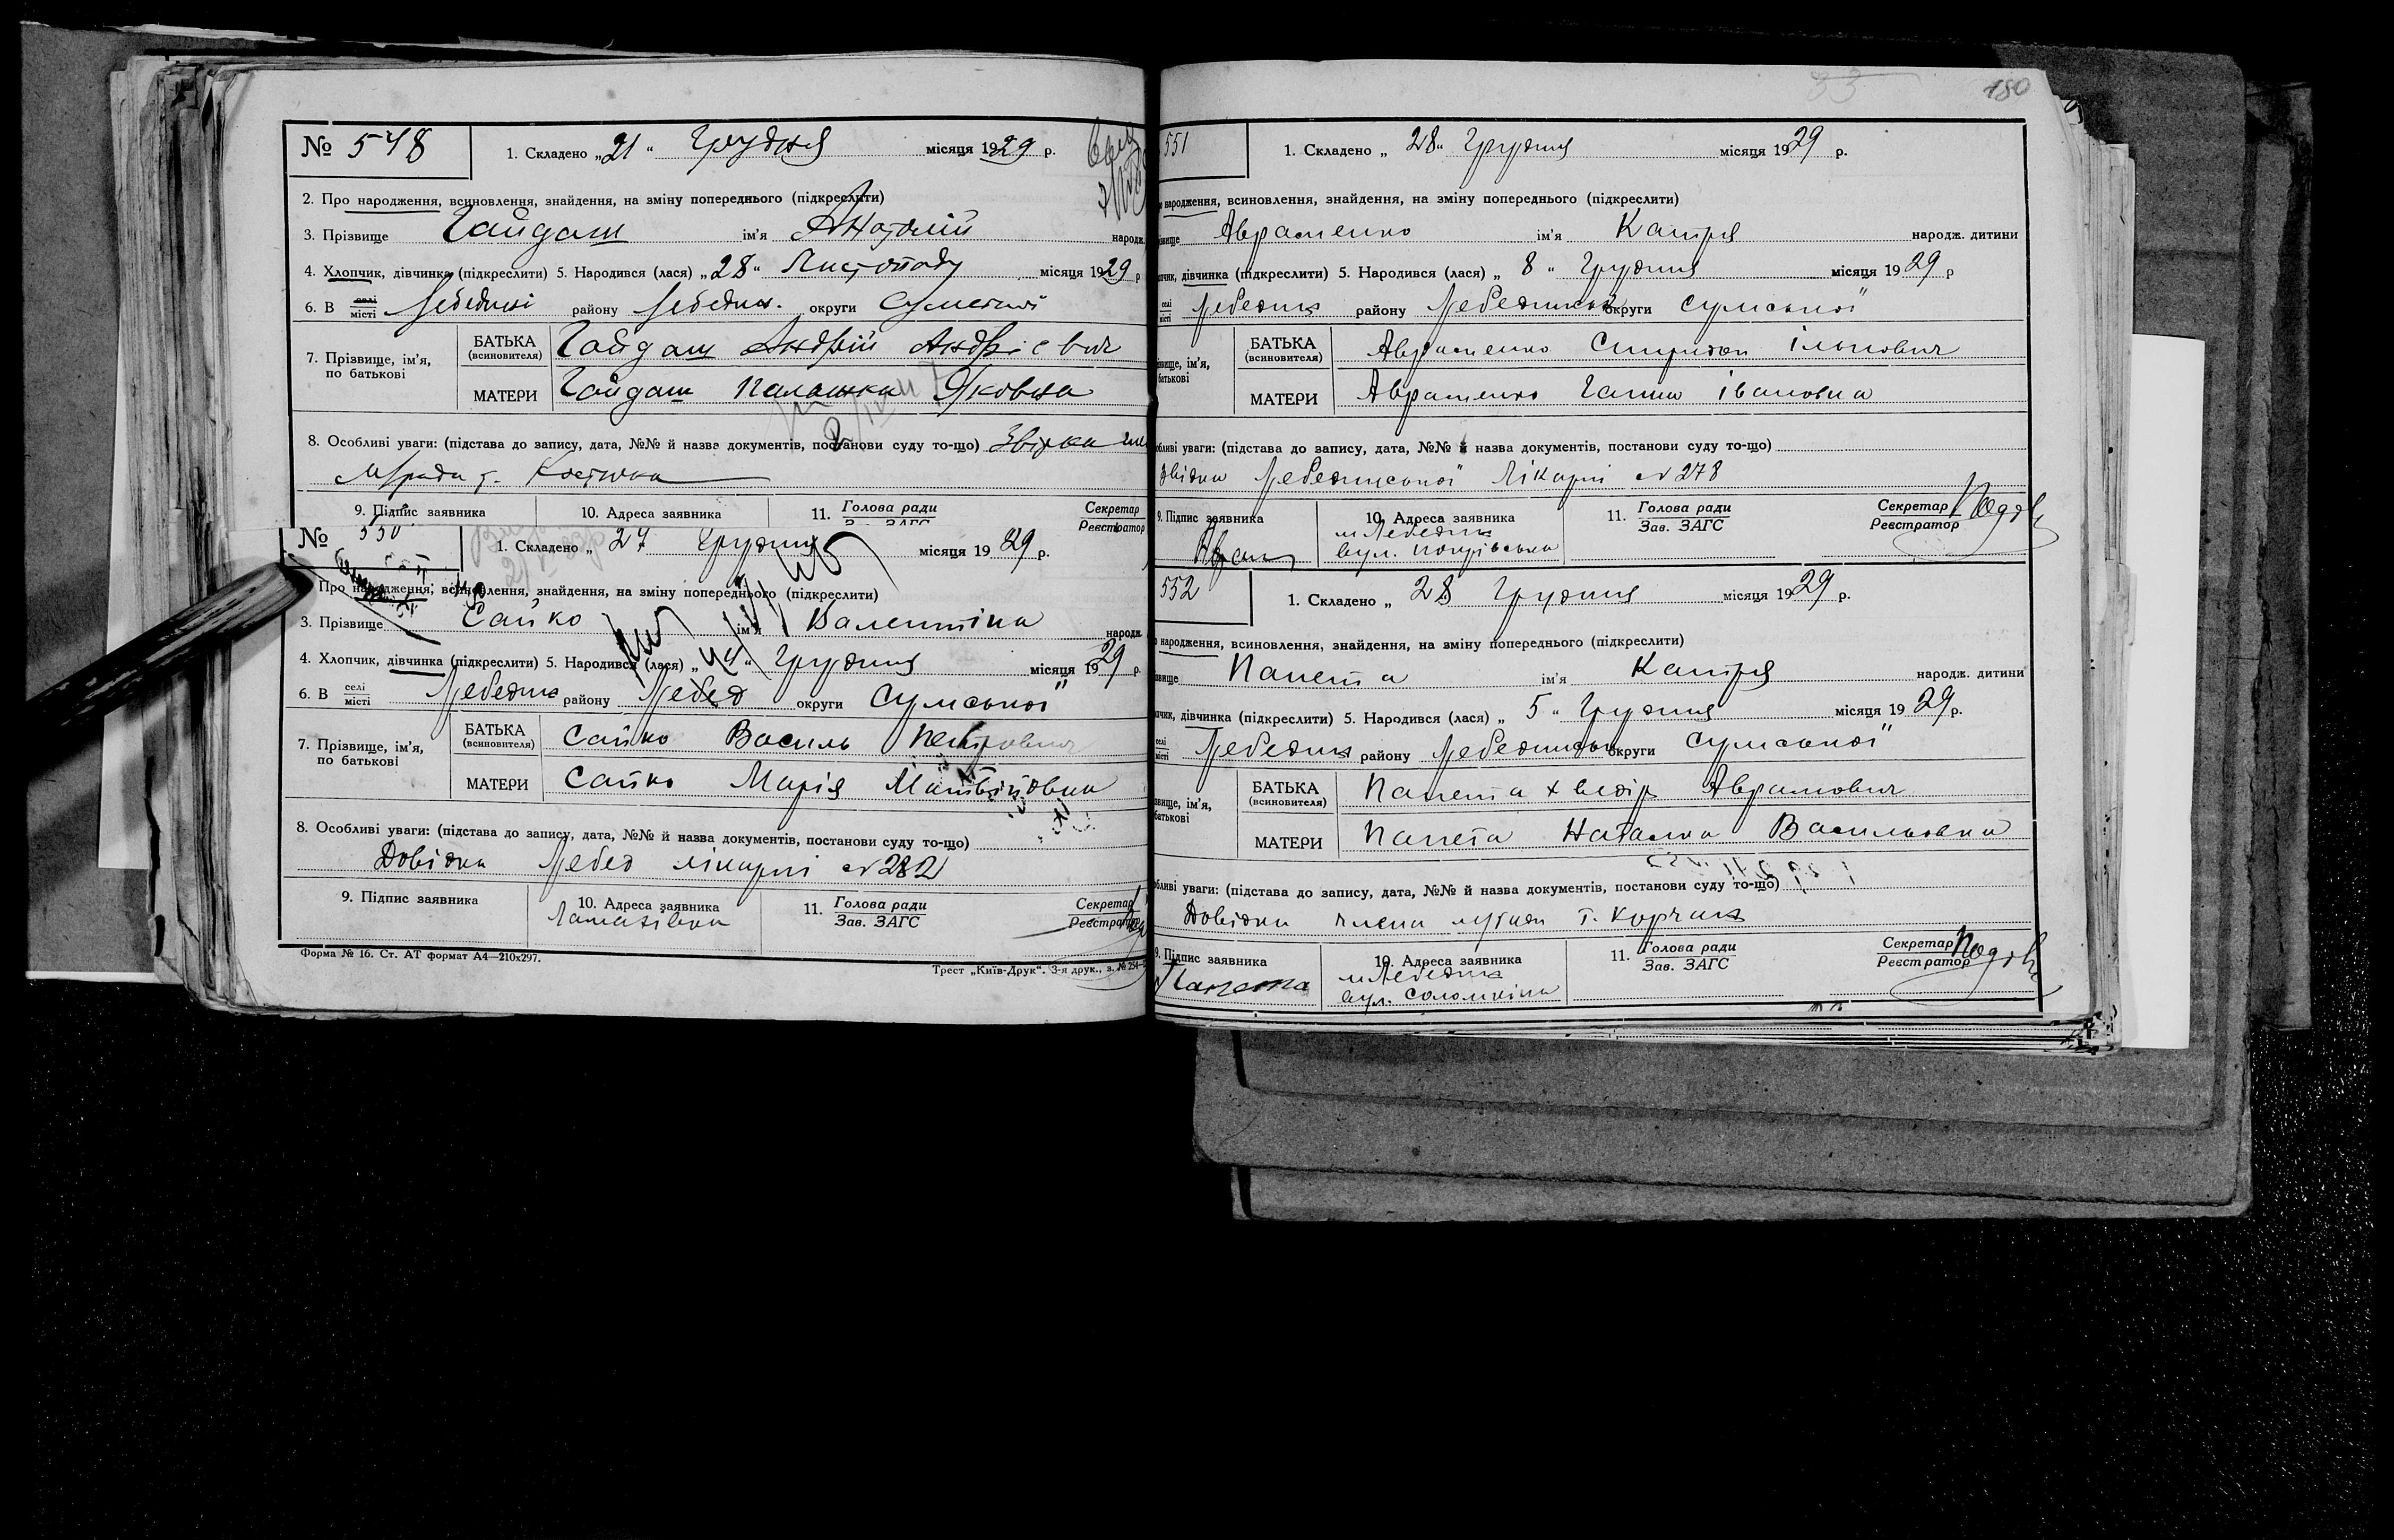 № 548
1. Складено „21“ Грудня місяця 1929 р.
2. Про народження, всиновлення, знайдення, на зміну попереднього (підкреслити)
3. Прізвище Гайдаш ім'я Анатолій народж.
4. Хлопчик, дівчинка (підкреслити) 5. Народився (лася) „28“ Листопаду місяця 1929 р
6. В селі місті Лебедині району Лебедин. округи Сумської
7. Прізвище, ім'я, по батькові
БАТЬКА (всиновителя) Гайдаш Андрій Андрієвич
МАТЕРИ Гайдаш Палажка Яковна
8. Особливі уваги: (підстава до запису, дата, №№ й назва документів, постанови суду то-що)
9. Підпис заявника 10. Адреса заявника 11. Голова ради Секретар
Реєстратор
№ 550
1. Складено „ 27 Грудня місяця 1929 р.
Про народження, всиновлення, знайдення, на зміну попереднього (підкреслити)
3. Прізвище Сайко ім'я Валентіна народж.
4. Хлопчик, дівчинка (підкреслити) 5. Народився (лася) „ “ Грудня місяця 1929 р.
6. В селі місті Лебедин району Лебед округи Сумської
7. Прізвище, ім'я, по батькові
БАТЬКА (всиновителя) Сайко Василь Петрович
МАТЕРИ Сайко Марія Матвіївна
8. Особливі уваги: (підстава до запису, дата, №№ й назва документів, постанови суду то-що)
Довідка Лебед лікарні № 282
9. Підпис заявника 10. Адреса заявника 11. Голова ради Зав. ЗАГС Секретар Реєстратор
Форма № 16. Ст. АТ формат А4—210х297.
Трест „Київ-Друк“. 3-я друк., з. № 254
33
180
551
1. Складено „ 28“ Грудня місяця 1929 р.
народження, всиновлення, знайдення, на зміну попереднього (підкреслити)
Авраменко ім'я Катря народж. дитини
дівчинка (підкреслити) 5. Народився (лася) „ 8 “ Грудня місяця 1929 р
Лебедин району Лебединськ округи Сумської
БАТЬКА (всиновителя) Авраменко Спиридон Ількович
МАТЕРИ Авраменко Ганна Івановна
уваги: (підстава до запису, дата, №№ й назва документів, постанови суду то-що)
Лебединської Лікарні № 278
9. Підпис заявника 10. Адреса заявника 11. Голова ради Зав. ЗАГС Секретар Реєстратор
м Лебедин
вул.
552
1. Складено „ 28 Грудня місяця 1929 р.
народження, всиновлення, знайдення, на зміну попереднього (підкреслити)
Папета ім'я Катря народж. дитини
дівчинка (підкреслити) 5. Народився (лася) „ 5 “ Грудня місяця 1929 р.
Лебедин району Лебединськ округи Сумської
БАТЬКА (всиновителя) Папета Хведір Аврамович
МАТЕРИ Папета Наталка Васильовна
уваги: (підстава до запису, дата, №№ й назва документів, постанови суду то-що)
Довідка члена
9. Підпис заявника 10. Адреса заявника 11. Голова ради Зав. ЗАГС Секретар Реєстратор
Папета м Лебедин
вул.